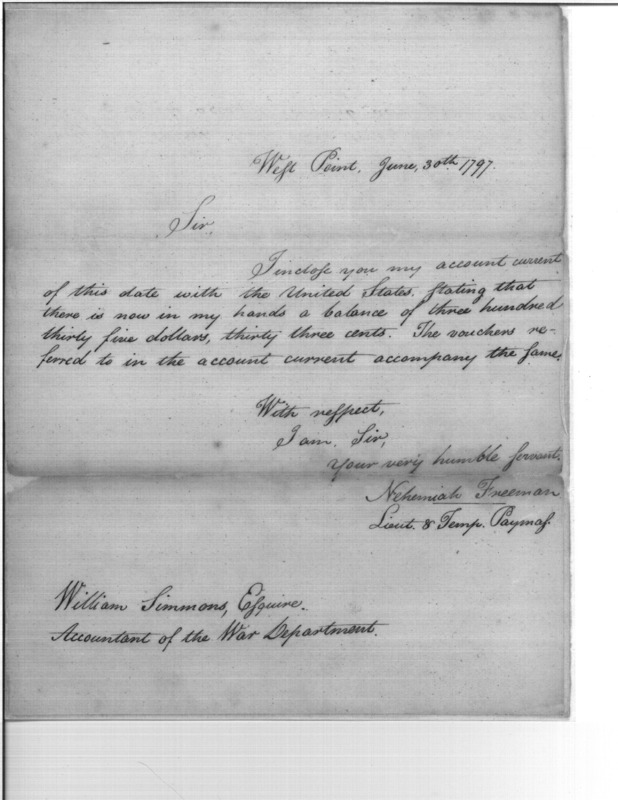 West Point, June, 30th 1797.
Sir,
I inclose you my account current
of this date with the United States. stating that
there is now in my hands a balance of three hundred
thirty five dollars, thirty three cents. The vouchers re-
ferred to in the account current accompany the same.
With respect,
I am, Sir,
your very humble servant.
Nehemiah Freeman
Lieut. & Temp. Paymas.
William Simmons, Esquire.
Accountant of the War Department.